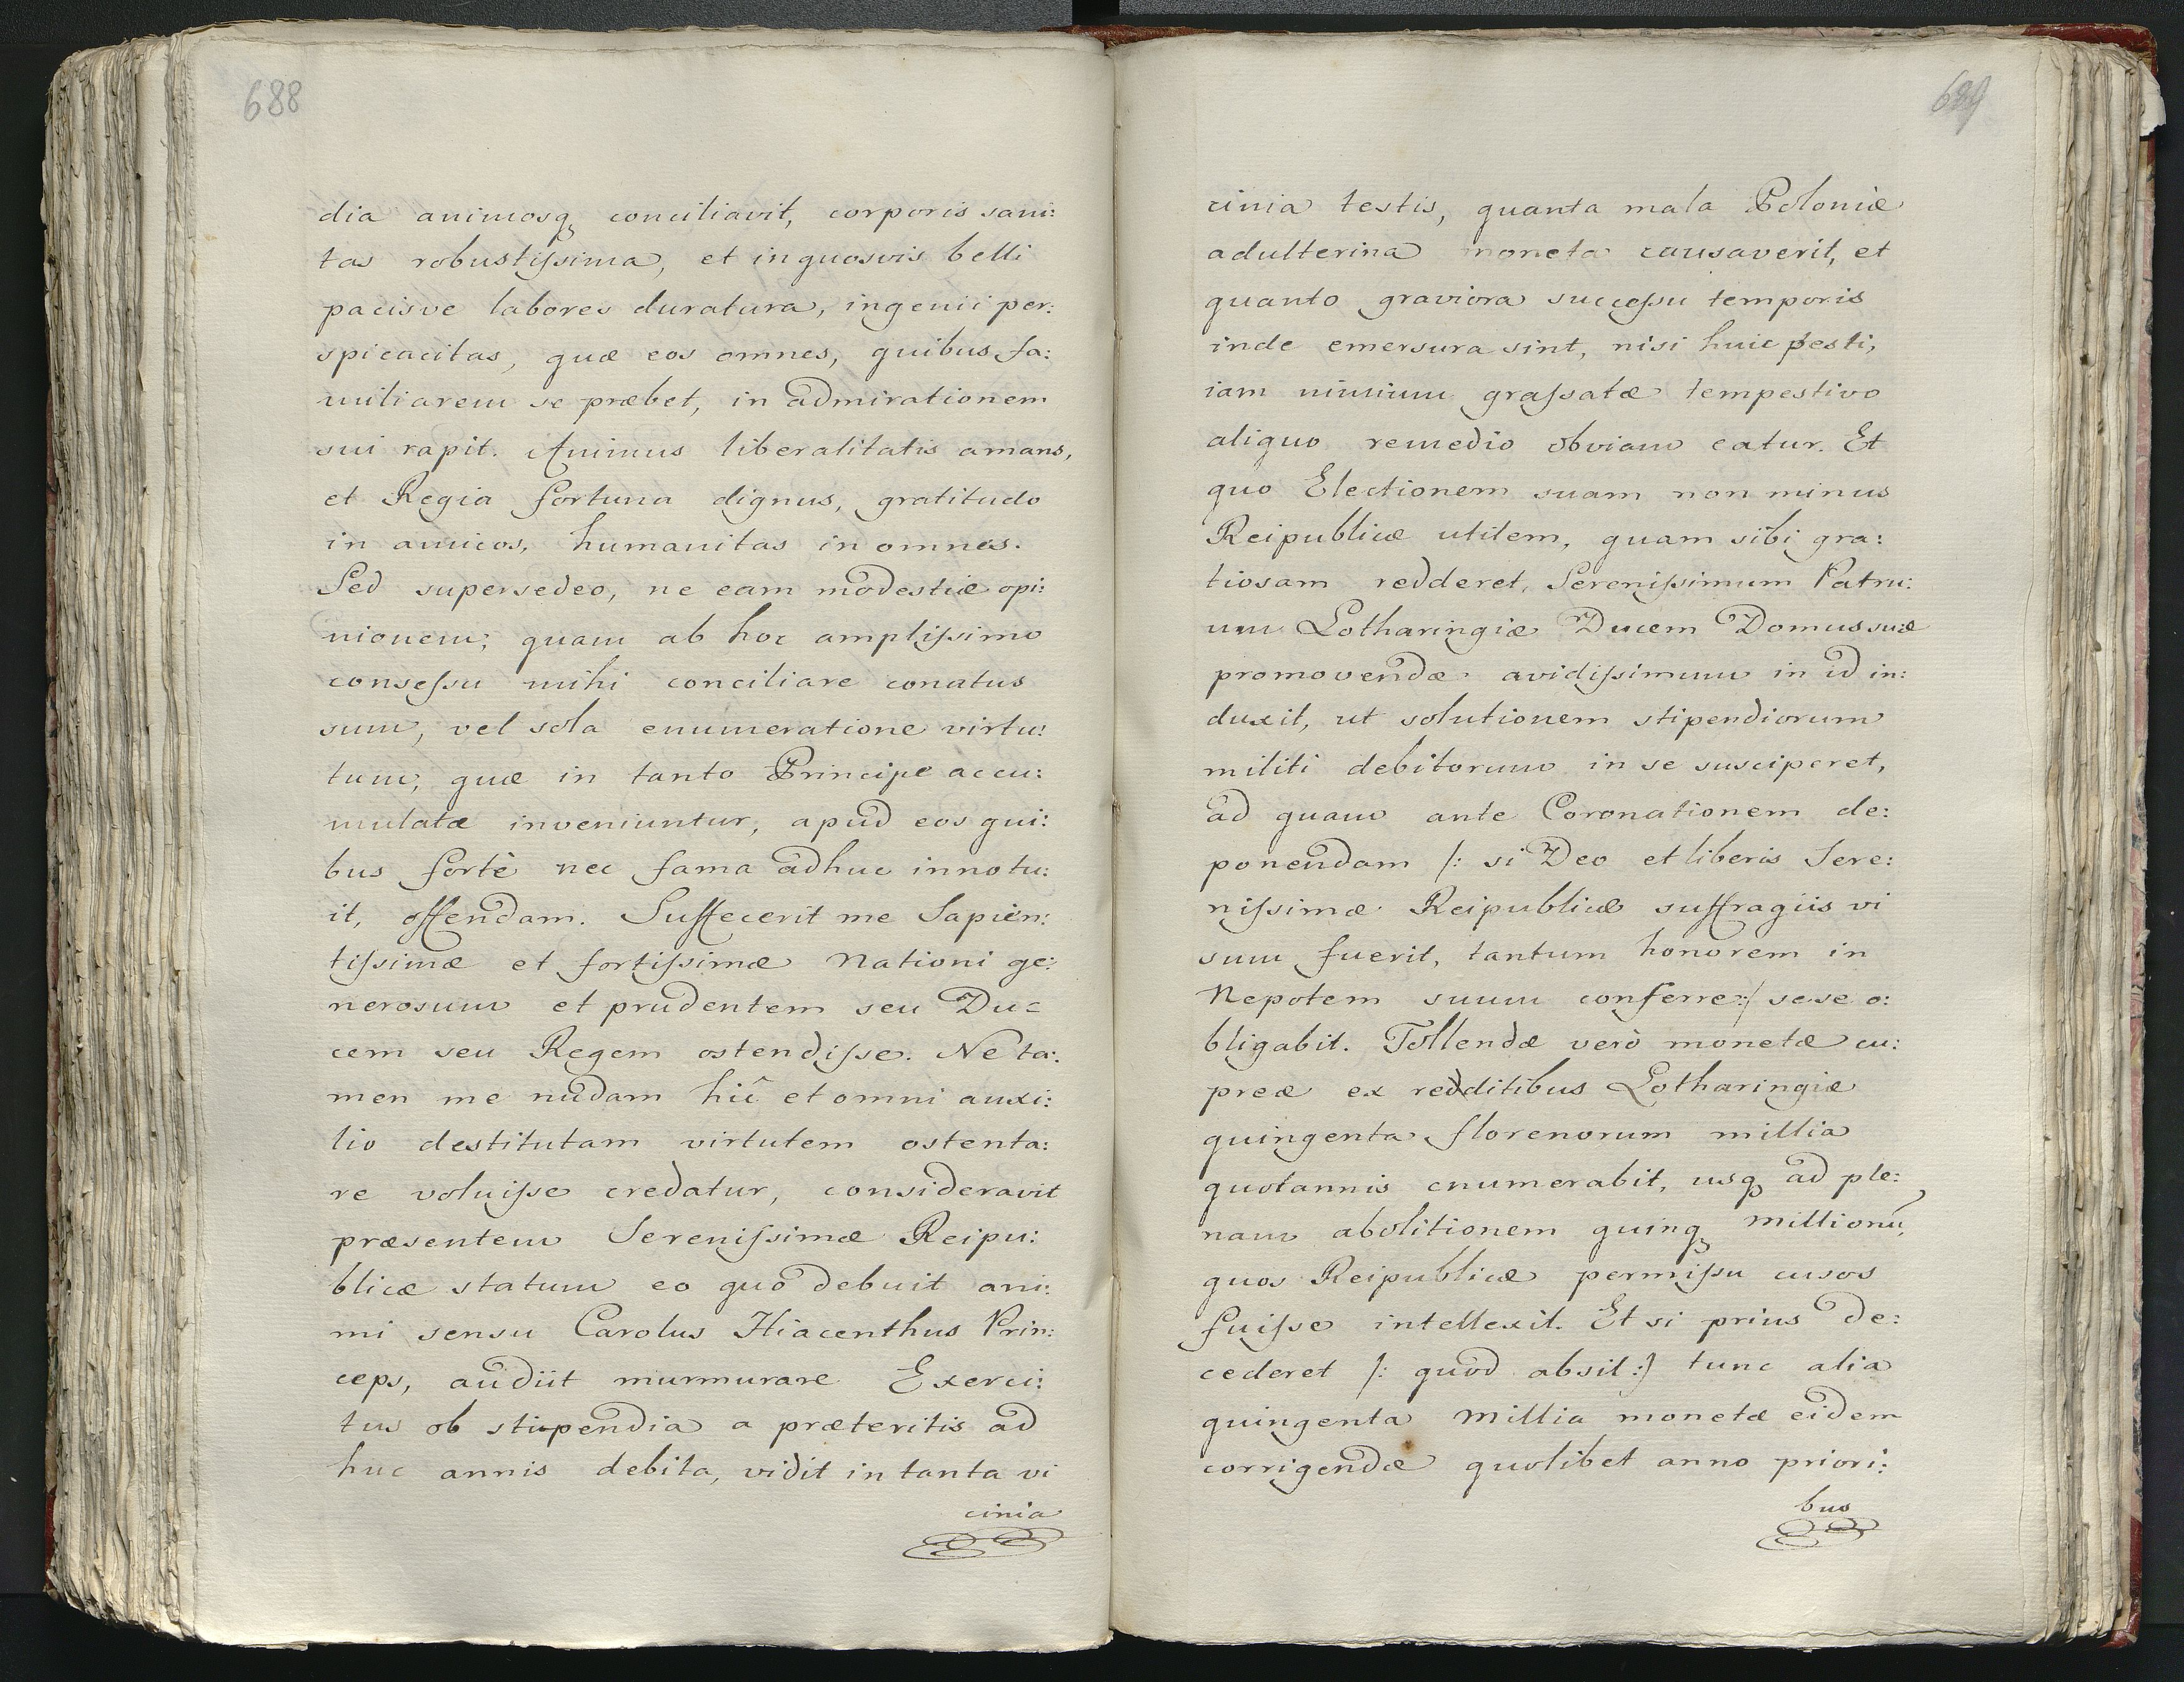 688
dia animosq conciliavit, corporis sani:
tas robustiſsima, et inquosvis belli
pacisve labores duratura, ingenii per:
spicacitas, quæ eos omnes, quibus fa:
miliarem se præbet, in admirationem
sui rapit. Animus liberalitatis amans,
et Regia fortuna dignus, gratitudo
in amicos, humanitas in omnes.
Sed supersedeo, ne eam modestiæ opi:
nionem; quam ab hoc ampliſsimo
conseſsu mihi conciliare conatus
sum, vel sola enumeratione virtu:
tum, quæ in tanto Principe accu:
mulatæ inveniuntur, apud eos qui:
bus fortè nec fama adhuc innotu:
it, offendam. Suffecerit me Sapien:
tiſsimæ et fortiſsimæ Nationi ge:
nerosum et prudentem seu Du=
cem seu Regem ostendiſse. Ne ta:
men me nudam hîc et omni auxi:
lio destitutam virtutem ostenta:
re voluiſse credatur, consideravit
præsentem Sereniſsimæ Reipu:
blicæ statum eo quo debuit ani:
mi sensu Carolus Hiacenthus Prin:
ceps, audiit murmurare Exerci:
tus ob stipendia a præteritis ad
huc annis debita, vidit in tanta vi
cinia
689
cinia testis, quanta mala Poloniæ
adulterina moneta causaverit, et
quanto graviora succeſsu temporis
inde emersura sint, nisi huic pesti,
iam nimium graſsatæ tempestivo
aliquo remedio obviam eatur. Et
quo Electionem suam non minus
Reipublicæ utilem, quam sibi gra:
tiosam redderet, Sereniſsimum Patru:
um Lotharingiæ Ducem Domus suæ
promovendæ avidiſsimum in id in:
duxit, ut solutionem stipendiorum
militi debitorum in se susciperet,
ad quam ante Coronationem de:
ponendam /: si Deo et liberis Sere:
niſsimæ Reipublicæ suffragiis vi
sum fuerit, tantum honorem in
Nepotem suum conferre:/ sese o:
bligabit. Tollendæ verò monetæ cu:
preæ ex redditibus Lotharingiæ
quingenta florenorum millia
quotannis enumerabit, usq ad ple:
nam abolitionem quinq millionũ,
quos Reipublicæ permiſsu cusos
fuiſse intellexit. Et si prius de:
cederet /: quod absit:/ tunc alia
quingenta millia monetæ eidem
corrigendæ quolibet anno priori:
bus